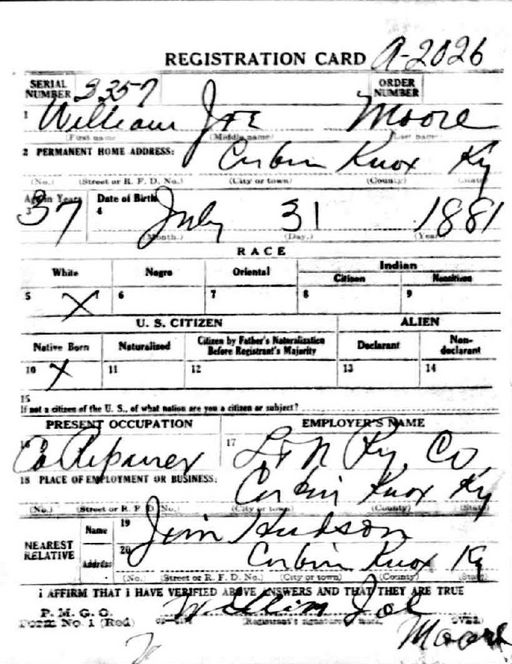 REGISTRATION CARD A-2026
SERIAL NUMBER 3357 ORDER NUMBER
1 William Joe Moore
(First name) (Middle name) (Last name)
2 PERMANENT HOME ADDRESS: Corbin Knox Ky
(No.) (Street or R. F. D. No.) (City or town) (County) (State)
Age in Years Date of Birth
3 37 4 July 31 1881
(Month.) (Day.) (Year.)
RACE
White Negro Oriental Indian
Citizen Noncitizen
5 X 6 7 8 9
U. S. CITIZEN ALIEN
Native Born Naturalized Citizen by Father's Naturalization Before Registrant's Majority Declarant Non-declarant
10 X 11 12 13 14
15
If not a citizen of the U. S., of what nation are you a citizen or subject?
PRESENT OCCUPATION EMPLOYER'S NAME
16 Ca Repairer 17 L & N Ry Co
18 PLACE OF EMPLOYMENT OR BUSINESS: Corbin Knox Ky
(No.) (Street or R. F. D. No.) (City or town) (County) (State)
NEAREST RELATIVE Name 19 Jim Hudson
Address 20 Corbin Knox Ky
(No.) (Street or R. F. D. No.) (City or town) (County) (State)
I AFFIRM THAT I HAVE VERIFIED ABOVE ANSWERS AND THAT THEY ARE TRUE
P. M. G. O.
Form No. 1 (Red) William Joe Moore
(Registrant's signature or mark) (OVER)